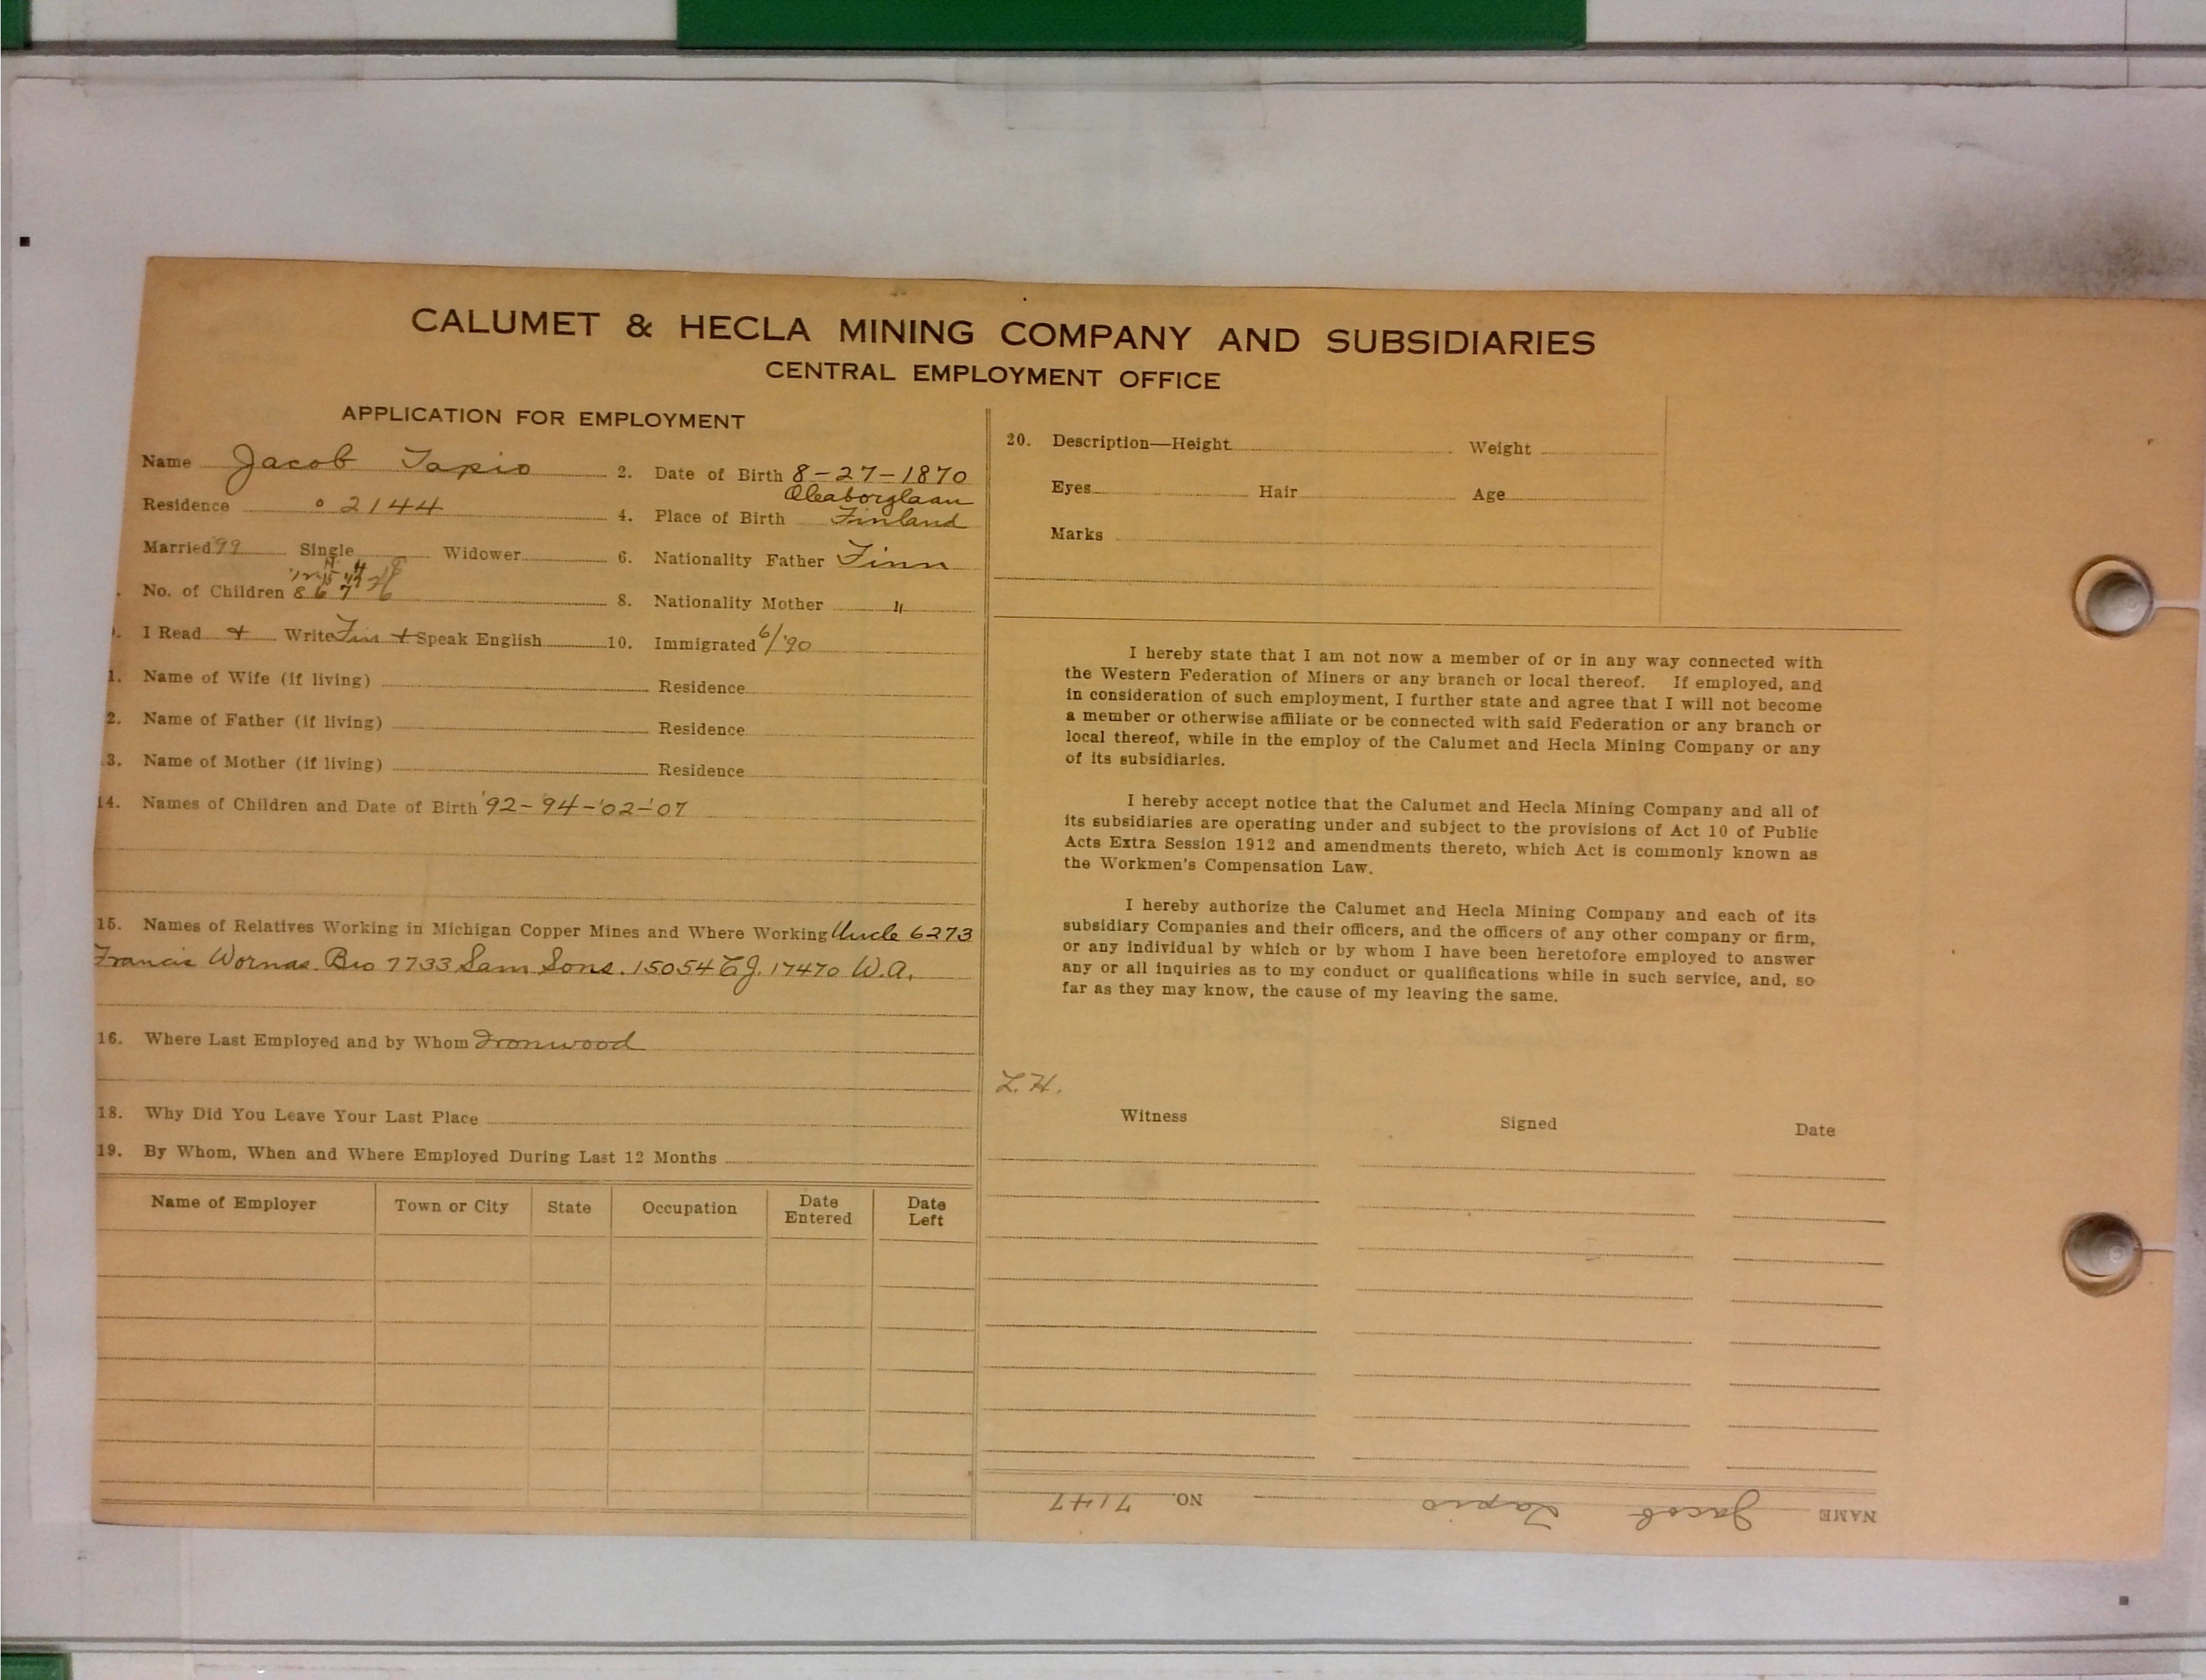 CALUMET & HECLA MINING COMPANY AND SUBSIDIARIES
CENTRAL EMPLOYMENT OFFICE
APPLICATION FOR EMPLOYMENT
Name Jacob Tapio 2. Date of Birth 8-27-1870
Residence 2144 4. Place of Birth Finland
Married '99 Single Widower 6. Nationality Father Finn
No. of Children 8 6 7 8. Nationality Mother "
I Read + Write Fin + Speak English 10. Immigrated 6/'90
1. Name of Wife (if living) Residence
2. Name of Father (if living) Residence
3. Name of Mother (if living) Residence
14. Names of Children and Date of Birth '92-94-'02-'07
15. Names of Relatives Working in Michigan Copper Mines and Where Working Uncle 6273
Francis Wornas. Bro 7733 Sam Sons. 15054 17470 W.A.
16. Where Last Employed and by Whom Ironwood
18. Why Did You Leave Your Last Place
19. By Whom, When and Where Employed During Last 12 Months
Name of Employer Town or City State Occupation Date Entered Date Left
20. Description—Height Weight
Eyes Hair Age
Marks
I hereby state that I am not now a member of or in any way connected with
the Western Federation of Miners or any branch or local thereof. If employed, and
in consideration of such employment, I further state and agree that I will not become
a member or otherwise affiliate or be connected with said Federation or any branch or
local thereof, while in the employ of the Calumet and Hecla Mining Company or any
of its subsidiaries.
I hereby accept notice that the Calumet and Hecla Mining Company and all of
its subsidiaries are operating under and subject to the provisions of Act 10 of Public
Acts Extra Session 1912 and amendments thereto, which Act is commonly known as
the Workmen's Compensation Law.
I hereby authorize the Calumet and Hecla Mining Company and each of its
subsidiary Companies and their officers, and the officers of any other company or firm,
or any individual by which or by whom I have been heretofore employed to answer
any or all inquiries as to my conduct or qualifications while in such service, and, so
far as they may know, the cause of my leaving the same.
L.H.
Witness Signed Date
NAME Jacob Tapio NO. 7147